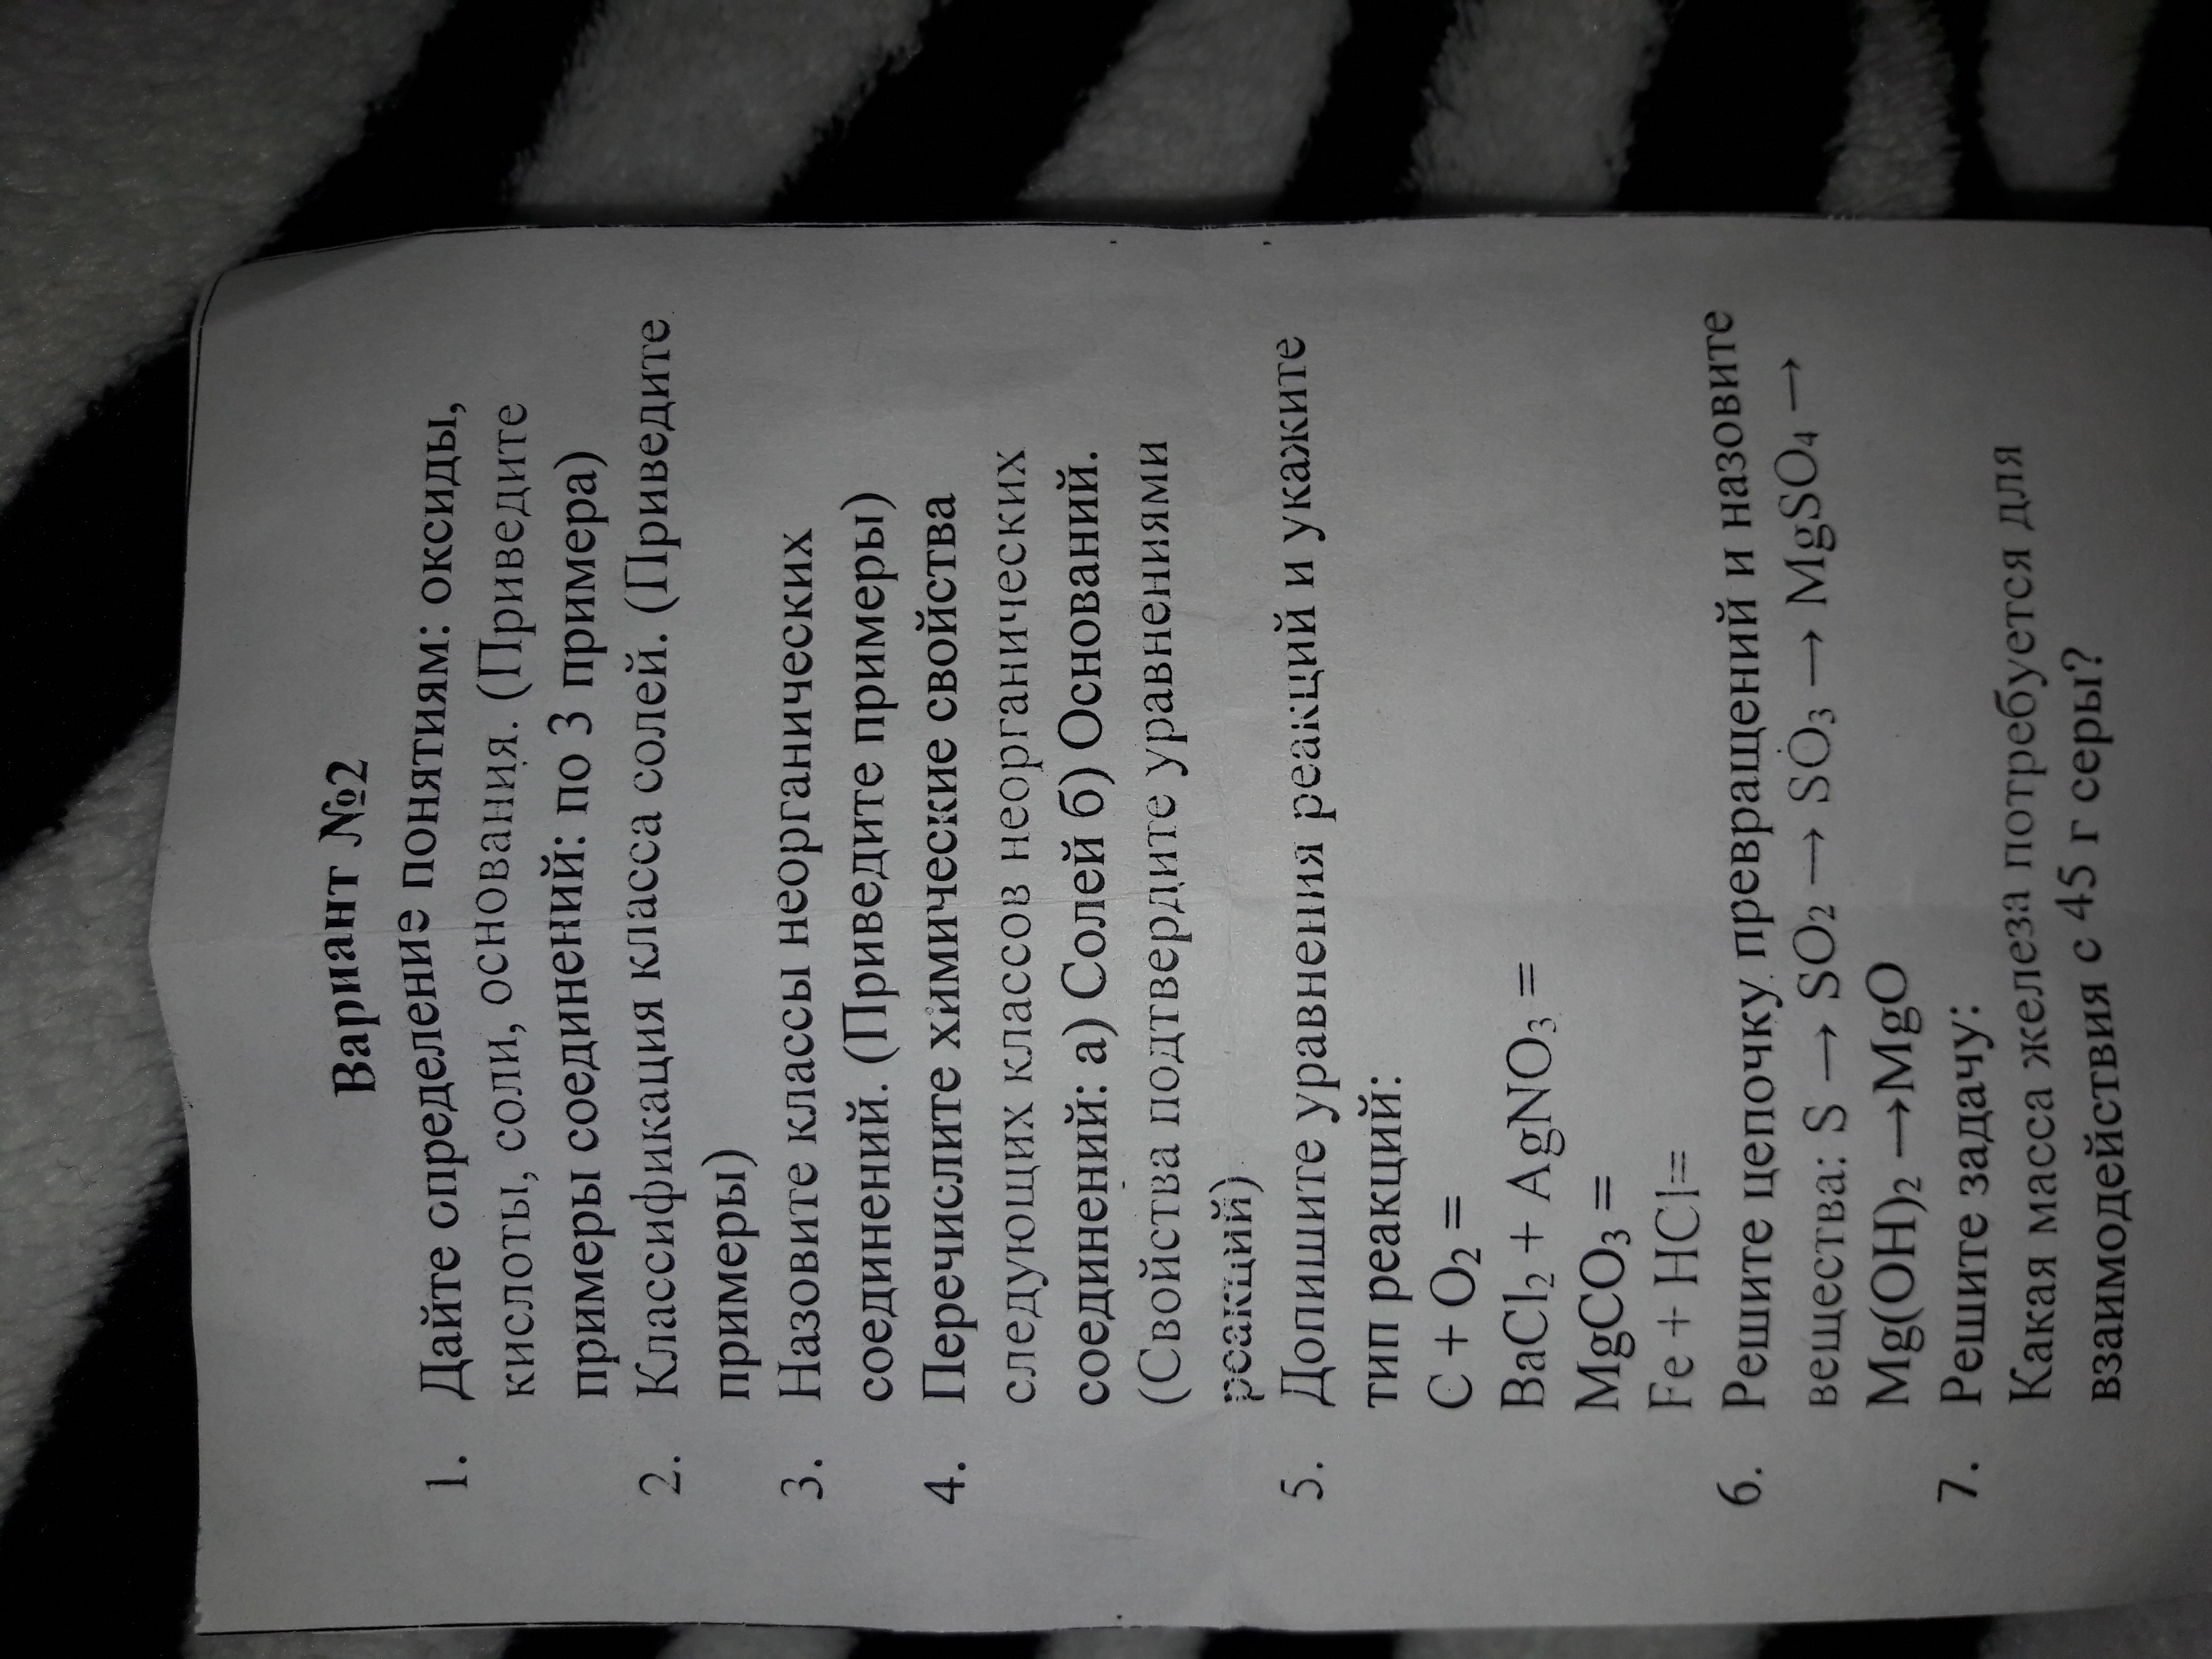 Вариант №2
1. Дайте определение понятиям: оксиды,
кислоты, соли, основания. (Приведите
примеры соединений: по 3 примера)
2. Классификация класса солей. (Приведите
примеры)
3. Назовите классы неорганических
соединений. (Приведите примеры)
4. Перечислите химические свойства
следующих классов неорганических
соединений: а) Солей б) Оснований.
(Свойства подтвердите уравнениями
реакций)
5. Допишите уравнения реакций и укажите
тип реакций:
C + O₂ =
BaCl₂ + AgNO₃ =
MgCO₃ =
Fe + HCl=
6. Решите цепочку превращений и назовите
вещества: S → SO₂ → SO₃ → MgSO₄ →
Mg(OH)₂ →MgO
7. Решите задачу:
Какая масса железа потребуется для
взаимодействия с 45 г серы?